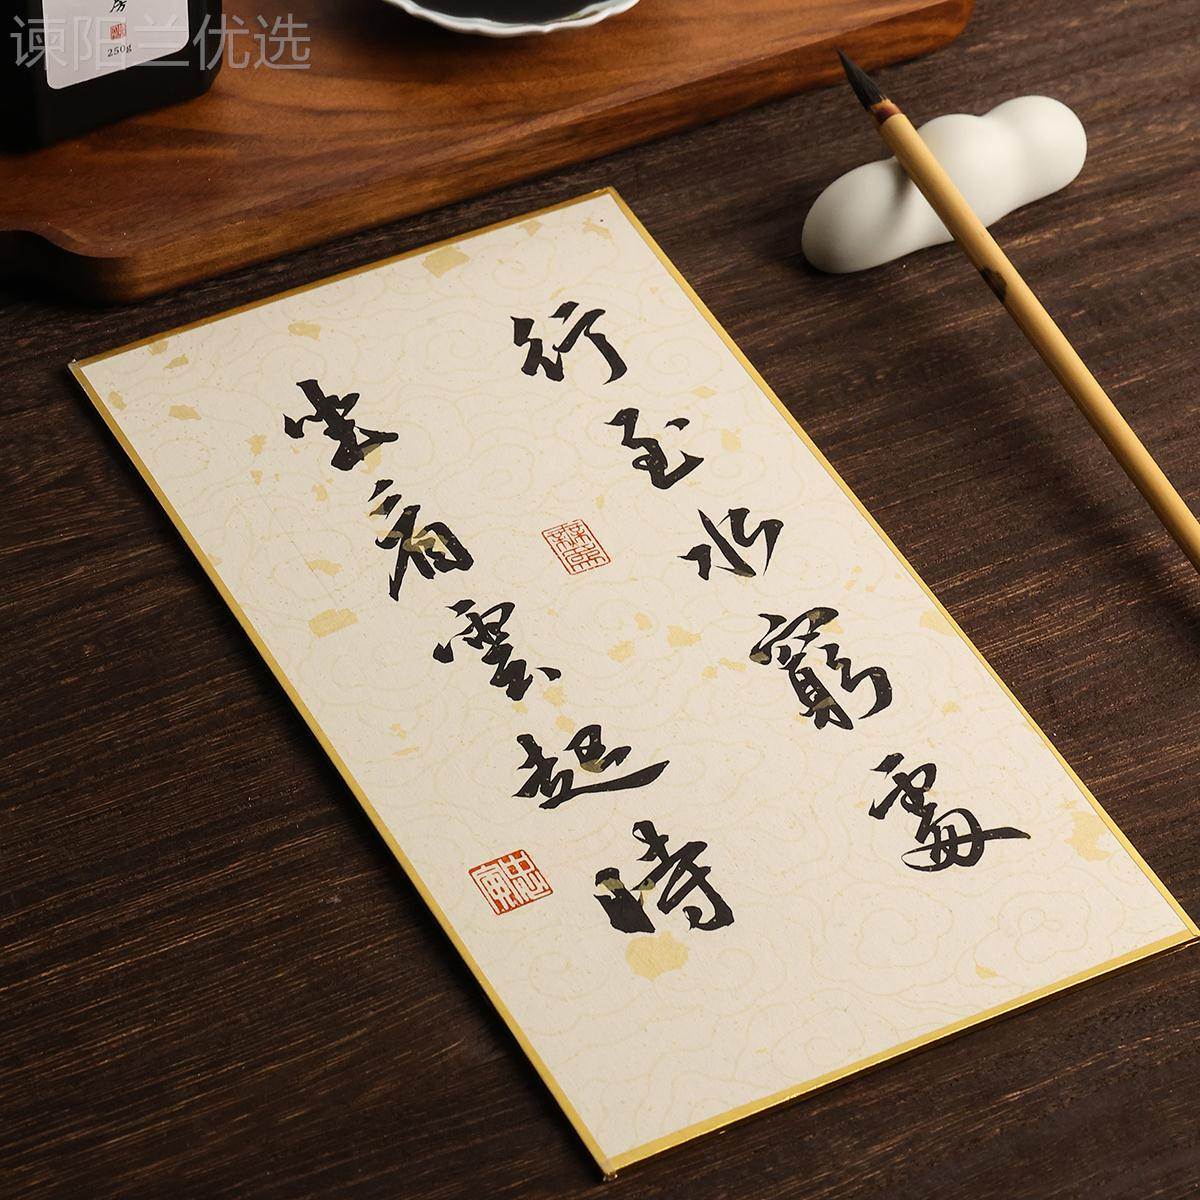 谏阳兰优选
房
250g
行至水窮處
坐看雲起時